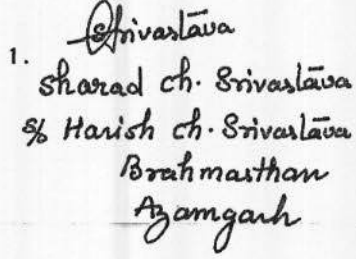 Srivastāva
1.
Sharad ch. Srivastāva
s/o Harish ch. Srivastāva
Brahmasthan
Azamgarh